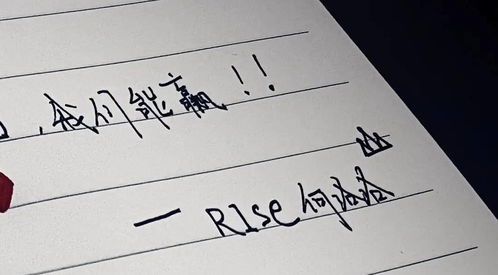 ,我们能赢!!
— RIse何洛洛